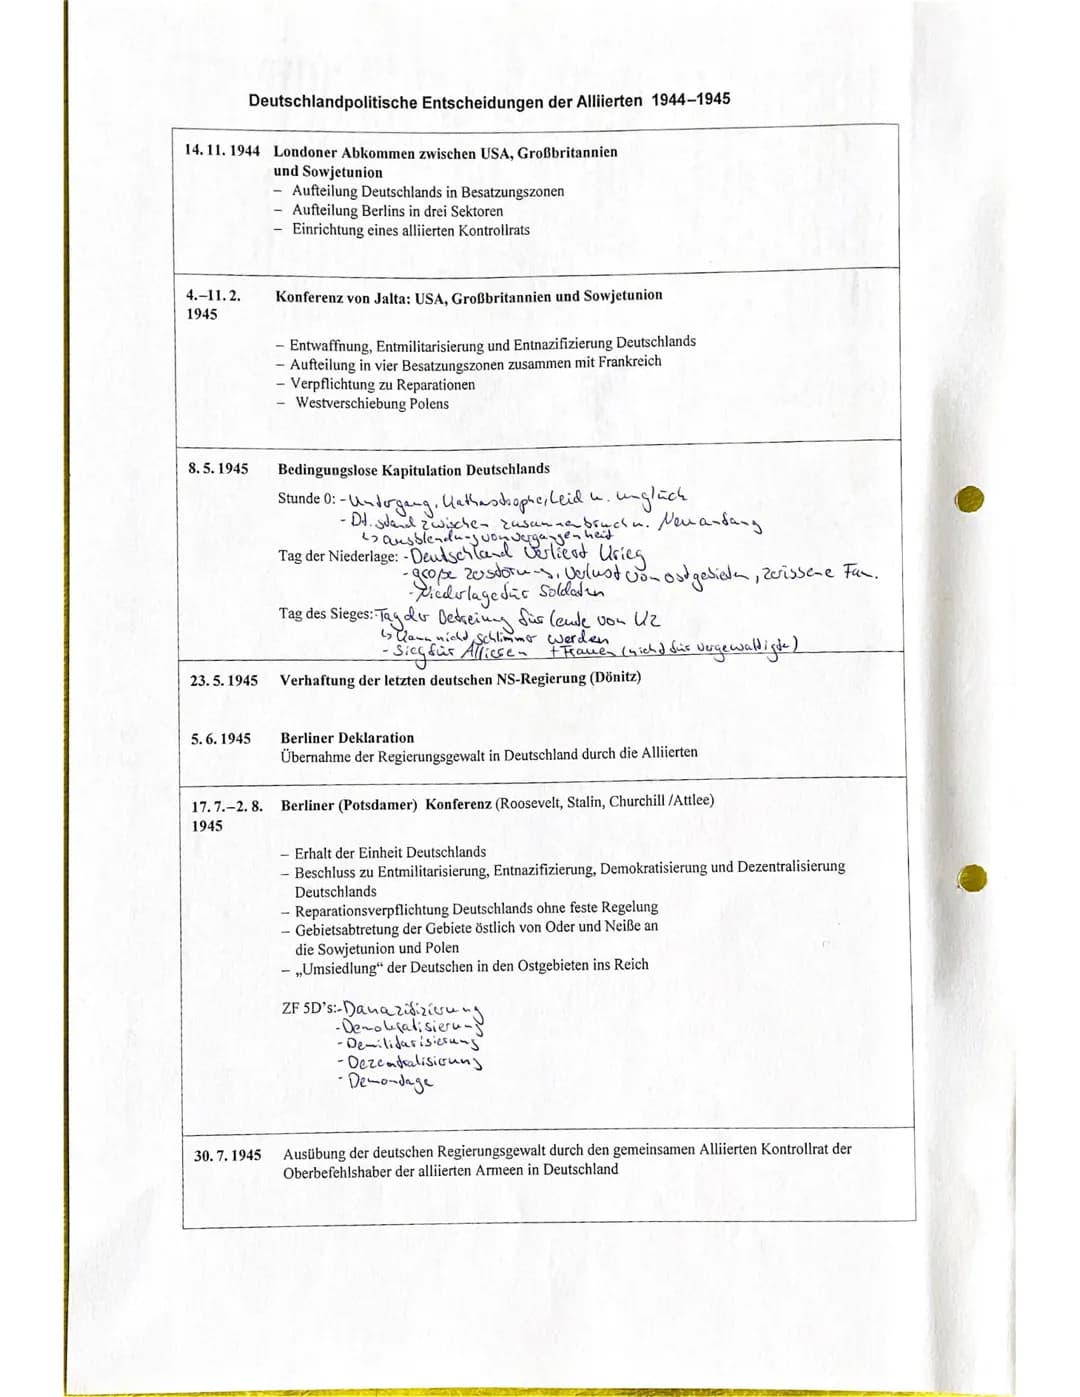 Deutschlandpolitische Entscheidungen der Alliierten 1944–1945
14. 11. 1944 Londoner Abkommen zwischen USA, Großbritannien
und Sowjetunion
– Aufteilung Deutschlands in Besatzungszonen
– Aufteilung Berlins in drei Sektoren
– Einrichtung eines alliierten Kontrollrats
4.–11. 2. Konferenz von Jalta: USA, Großbritannien und Sowjetunion
1945
– Entwaffnung, Entmilitarisierung und Entnazifizierung Deutschlands
– Aufteilung in vier Besatzungszonen zusammen mit Frankreich
– Verpflichtung zu Reparationen
– Westverschiebung Polens
8. 5. 1945 Bedingungslose Kapitulation Deutschlands
Stunde 0: - Untergang, Kathastrophe, Leid u. unglück
- Dt. stand zwischen zusammenbruch u. Neuanfang
↳ ausblendung von vergangenheit
Tag der Niederlage: - Deutschland verliert Krieg
- große zerstörung, Verlust von ostgebieten, zerissene Fam.
- Niederlage für Soldaten
Tag des Sieges: Tag der Befreiung für Leute von KZ
↳ kann nicht schlimmer werden
- Sieg für Alliesen + Frauen (nicht für vergewaltigte)
23. 5. 1945 Verhaftung der letzten deutschen NS-Regierung (Dönitz)
5. 6. 1945 Berliner Deklaration
Übernahme der Regierungsgewalt in Deutschland durch die Alliierten
17. 7.–2. 8. Berliner (Potsdamer) Konferenz (Roosevelt, Stalin, Churchill /Attlee)
1945
– Erhalt der Einheit Deutschlands
– Beschluss zu Entmilitarisierung, Entnazifizierung, Demokratisierung und Dezentralisierung
Deutschlands
– Reparationsverpflichtung Deutschlands ohne feste Regelung
– Gebietsabtretung der Gebiete östlich von Oder und Neiße an
die Sowjetunion und Polen
– „Umsiedlung“ der Deutschen in den Ostgebieten ins Reich
ZF 5D's: - Danazifizierung
- Demokratisierung
- Demilitarisierung
- Dezentralisierung
- Demontage
30. 7. 1945 Ausübung der deutschen Regierungsgewalt durch den gemeinsamen Alliierten Kontrollrat der
Oberbefehlshaber der alliierten Armeen in Deutschland